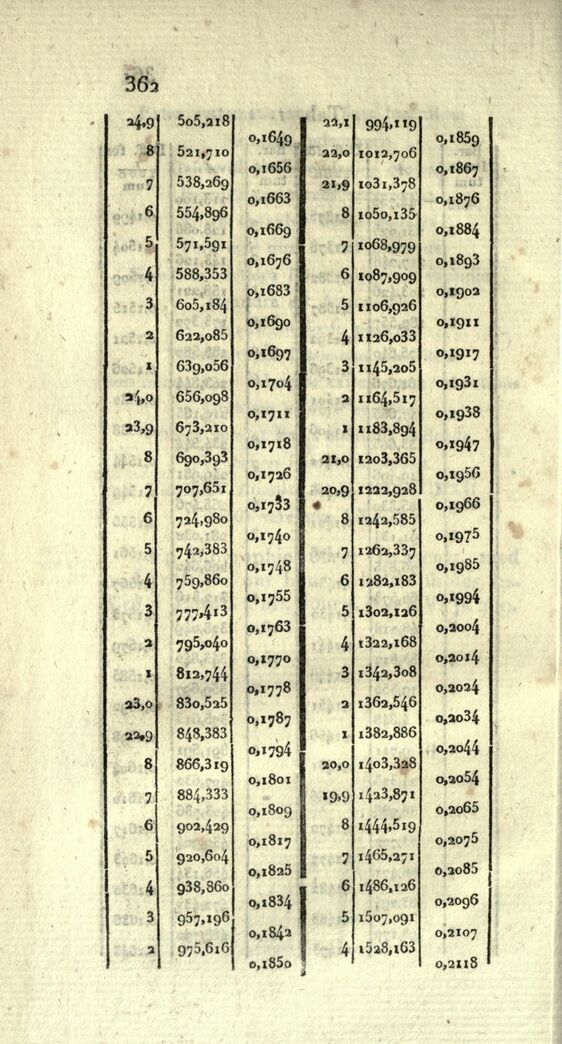 362
24,9 505,218 22,1 994,119
0,1649 0,1859
8 521,710 22,0 1012,706
0,1656 0,1867
7 538,269 21,9 1031,378
0,1663 0,1876
6 554,896 8 1050,135
0,1669 0,1884
5 571,591 7 1068,979
0,1676 0,1893
4 588,353 6 1087,909
0,1683 0,1902
3 605,184 5 1106,926
0,1690 0,1911
2 622,085 4 1126,033
0,1697 0,1917
1 639,056 3 1145,205
0,1704 0,1931
24,0 656,098 2 1164,517
0,1711 0,1938
23,9 673,210 1 1183,894
0,1718 0,1947
8 690,393 21,0 1203,365
0,1726 0,1956
7 707,651 20,9 1222,928
0,1733 0,1966
6 724,980 8 1242,585
0,1740 0,1975
5 742,383 7 1262,337
0,1748 0,1985
4 759,860 6 1282,183
0,1755 0,1994
3 777,413 5 1302,126
0,1763 0,2004
2 795,040 4 1322,168
0,1770 0,2014
1 812,744 3 1342,308
0,1778 0,2024
23,0 830,525 2 1362,546
0,1787 0,2034
22,9 848,383 1 1382,886
0,1794 0,2044
8 866,319 20,0 1403,328
0,1801 0,2054
7 884,333 19,9 1423,871
0,1809 0,2065
6 902,429 8 1444,519
0,1817 0,2075
5 920,604 7 1465,271
0,1825 0,2085
4 938,860 6 1486,126
0,1834 0,2096
3 957,196 5 1507,091
0,1842 0,2107
2 975,616 4 1528,163
0,1850 0,2118